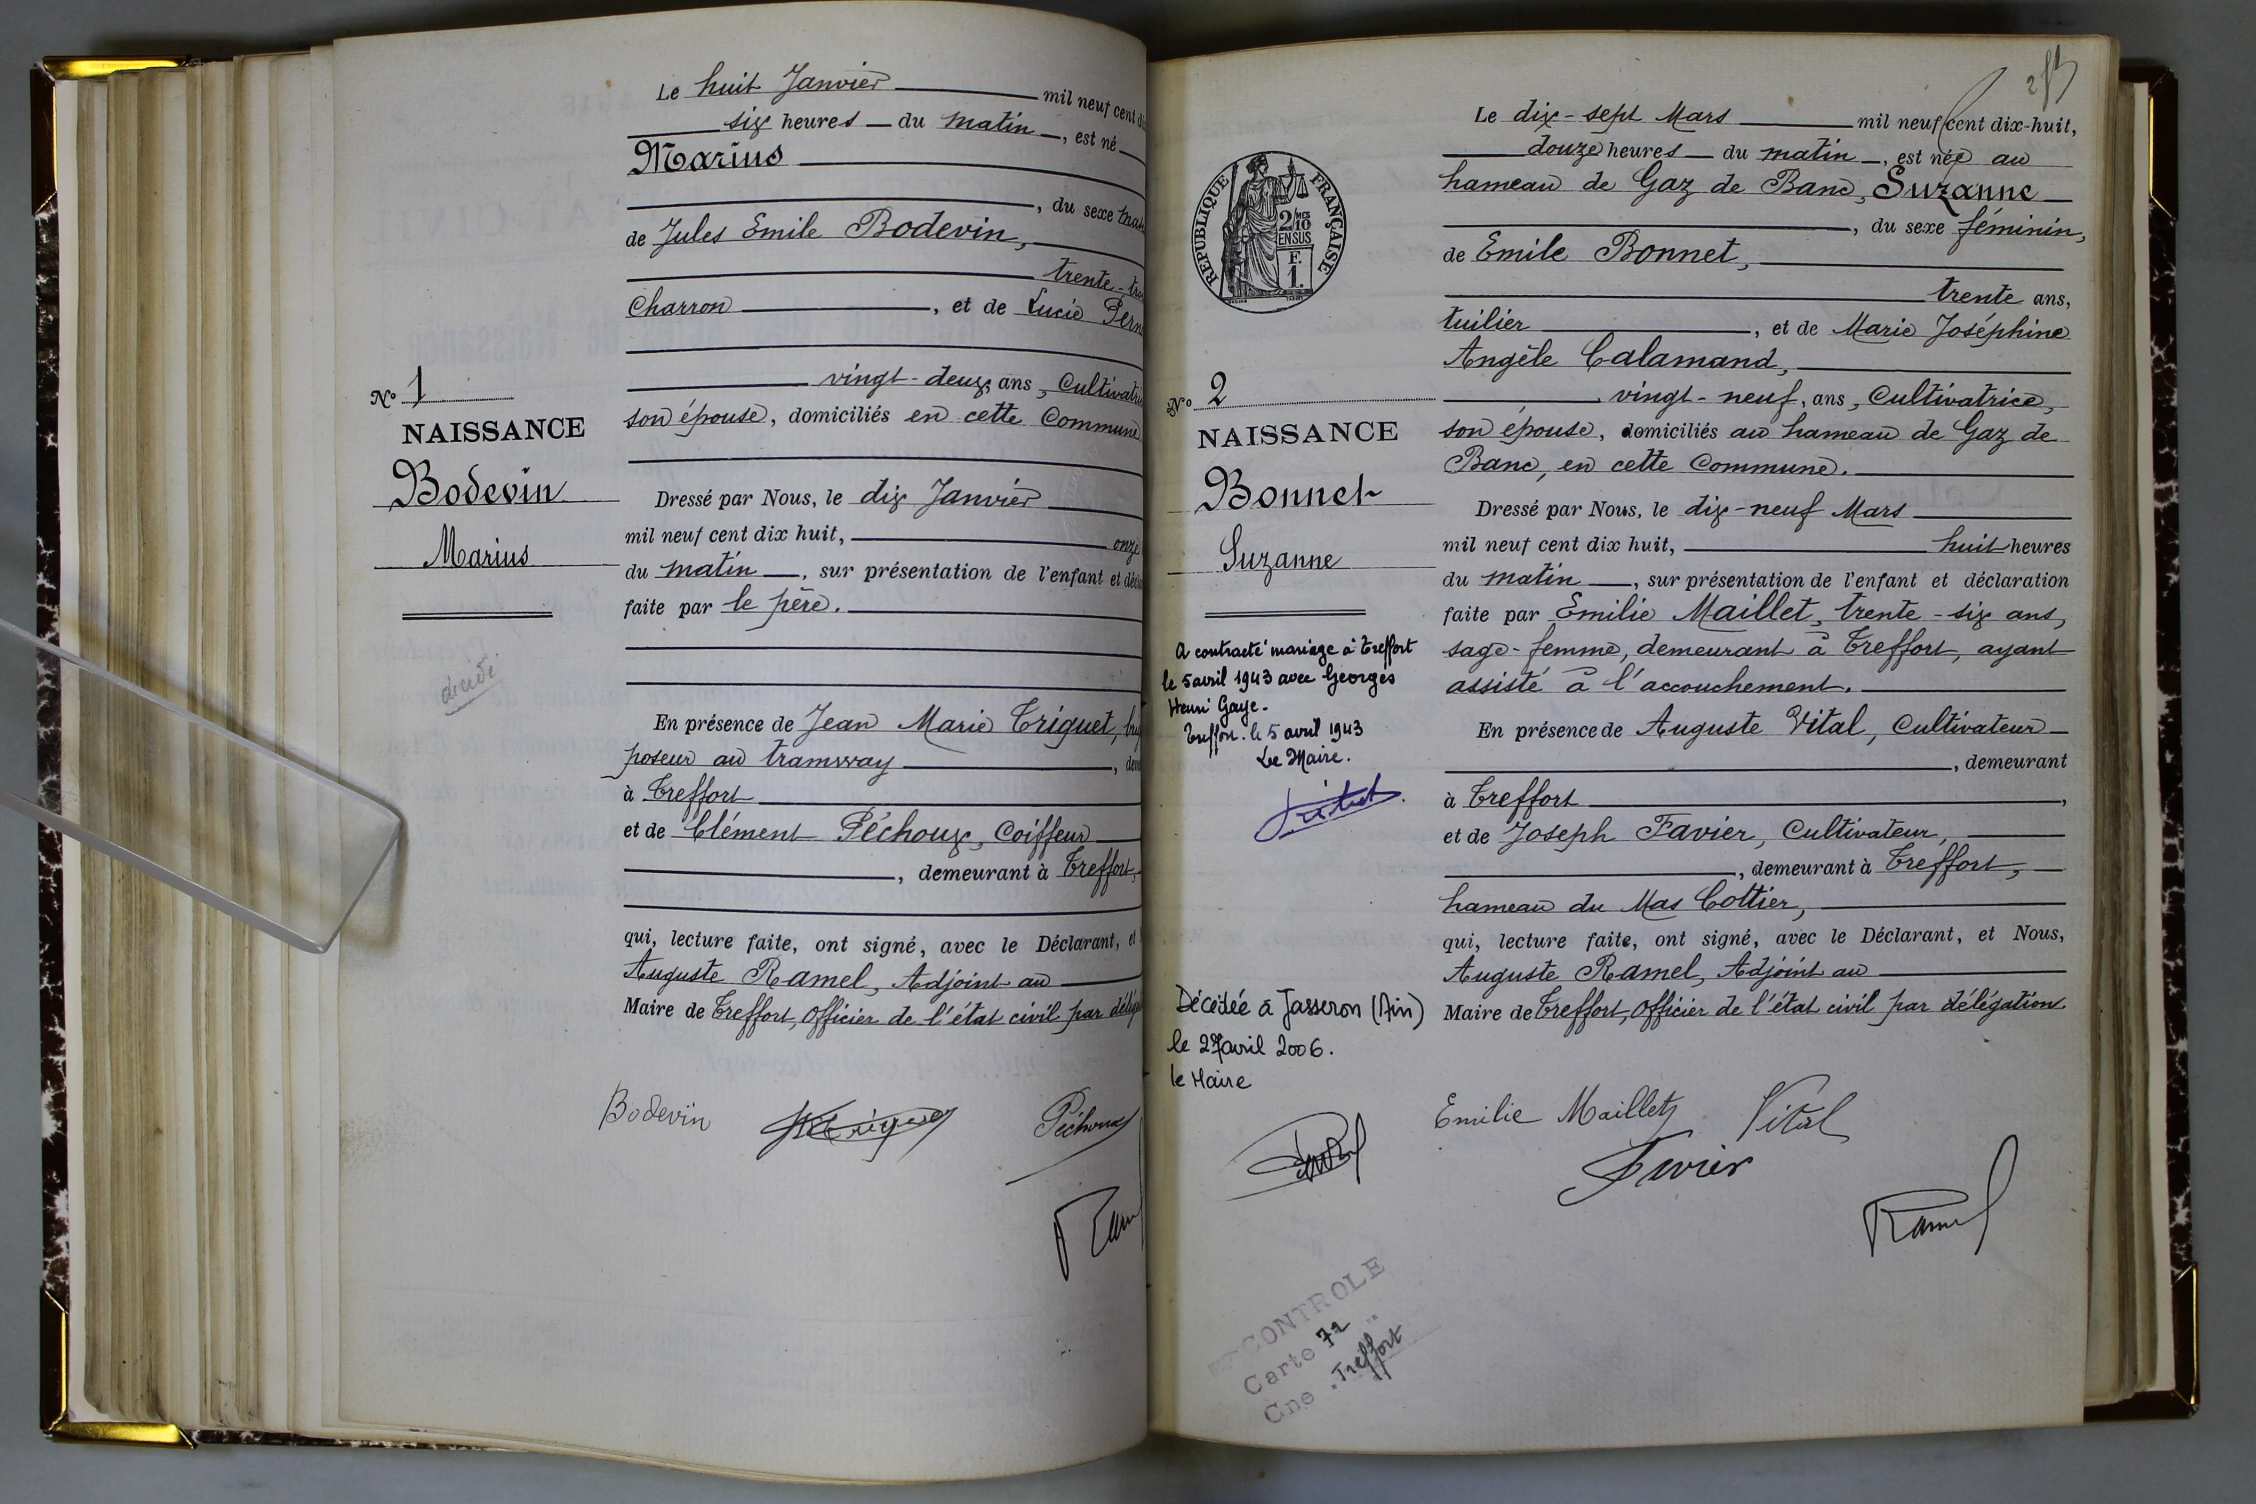 Le huit Janvier mil neuf cent
six heures du matin, est né
Marius
, du sexe
de Jules Emile Bodevin,
trente-
Charron, et de Lucie
vingt-deux ans, Cultivatri
son épouse, domiciliés en cette Commune
Dressé par Nous, le dix Janvier
mil neuf cent dix huit, onze
du matin, sur présentation de l'enfant et
faite par le père.
En présence de Jean Marie Triguet,
poseur au tramway,
à Treffort
et de Clément Péchoux, Coiffeur
, demeurant à Treffort,
qui, lecture faite, ont signé, avec le Déclarant, et
Auguste Ramel, Adjoint au
Maire de Treffort, Officier de l'état civil par
Bodevin
Péchoux
Ramel
No 1
NAISSANCE
Bodevin
Marius
Le dix-sept Mars mil neuf cent dix-huit,
douze heures du matin, est née au
hameau de Gaz de Banc, Suzanne
, du sexe féminin,
de Emile Bonnet,
trente ans,
tuilier, et de Marie Joséphine
Angèle Calamand,
vingt-neuf, ans, Cultivatrice,
son épouse, domiciliés au hameau de Gaz de
Banc, en cette Commune.
Dressé par Nous, le dix-neuf Mars
mil neuf cent dix huit, huit heures
du matin, sur présentation de l'enfant et déclaration
faite par Emilie Maillet, trente-six ans,
sage-femme, demeurant à Treffort, ayant
assisté à l'accouchement.
En présence de Auguste Vital, Cultivateur
, demeurant
à Treffort,
et de Joseph Favier, Cultivateur,
, demeurant à Treffort,
hameau du Mas Cottier,
qui, lecture faite, ont signé, avec le Déclarant, et Nous,
Auguste Ramel, Adjoint au
Maire de Treffort, Officier de l'état civil par délégation.
Emilie Maillet Vital
Favier
Ramel
RÉPUBLIQUE FRANÇAISE
2/10
EN SUS
F.
1.
No 2
NAISSANCE
Bonnet
Suzanne
A contracté mariage à Treffort
le 5 avril 1943 avec Georges
Henri Gaye.
Treffort. le 5 avril 1943
Le Maire.
Décédée à Jasseron (Ain)
le 27 avril 2006.
le Maire
CONTROLE
Carte 72
Cne "Treffort"